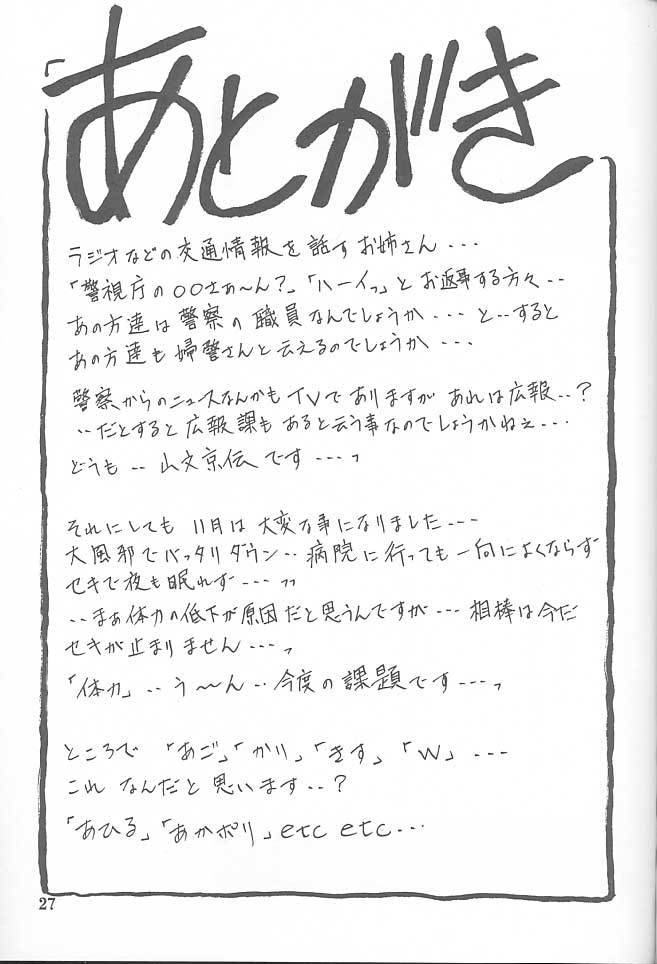 あとがき
ラジオなどの交通情報を話すお姉さん・・・
「警視庁の〇〇さぁ〜ん？」「ハーイっ」とお返事する方々・・
あの方達は警察の職員なんでしょうか・・・と・・すると
あの方達も婦警さんと云えるのでしょうか・・・
警察からのニュースなんかもTVでありますがあれは広報・・？
・・だとすると広報課もあると云う事なのでしょうかねぇ・・・
どうも・・山文京伝です・・・っ
それにしても11月は大変な事になりました・・・
大風邪でバッタリダウン・・病院に行っても一向によくならず
セキで夜も眠れず・・・っっ
・・まぁ体力の低下が原因だと思うんですが・・・相棒は今だ
セキが止まりません・・・っ
「体力」・・う〜〜ん・・今度の課題です・・・っ
ところで「あご」「かり」「きす」「W」・・・
これなんだと思います・・？
「あひる」「あかポリ」etc etc・・・
27